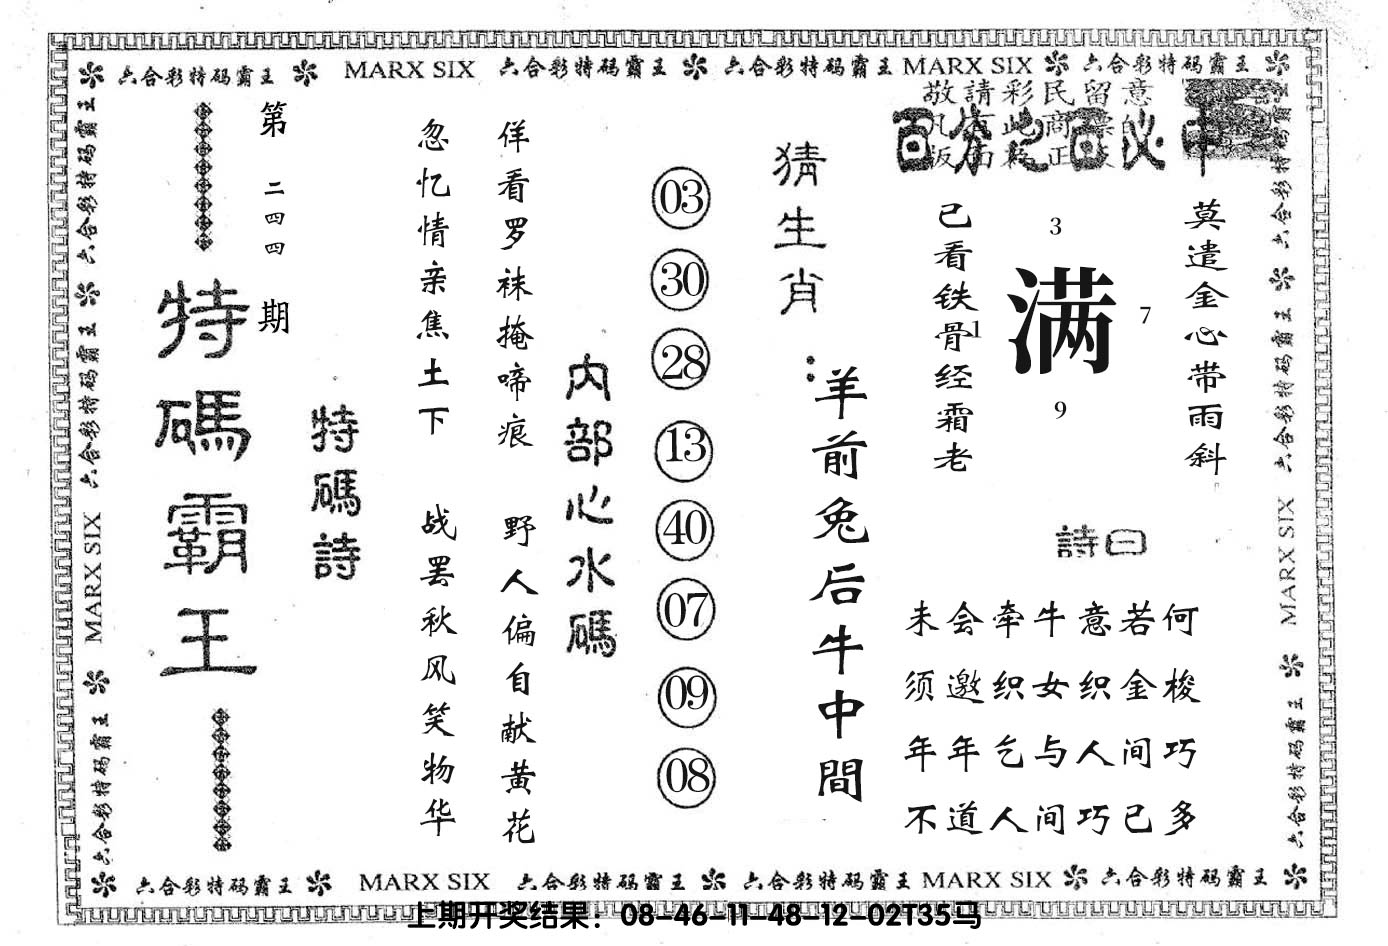 六合彩特码霸王 MARX SIX 六合彩特码霸王 六合彩特码霸王 MARX SIX 六合彩特码霸王
敬請彩民留意
百分之百必中
莫遣金心带雨斜
3
满
7
1
9
已看铁骨经霜老
詩曰
未会牵牛意若何
须邀织女织金梭
年年乞与人间巧
不道人间巧已多
猜生肖：
羊前兔后牛中間
03
30
28
13
40
07
09
08
内部心水碼
佯看罗袜掩啼痕 野人偏自献黄花
忽忆情亲焦土下 战罢秋风笑物华
特碼詩
第二四四期
特碼霸王
六合彩特码霸王 六合彩特码霸王 MARX SIX 六合彩特码霸王
六合彩特码霸王 六合彩特码霸王 MARX SIX 六合彩特码霸王
六合彩特码霸王 MARX SIX 六合彩特码霸王 六合彩特码霸王 MARX SIX 六合彩特码霸王
上期开奖结果：08-46-11-48-12-02T35马